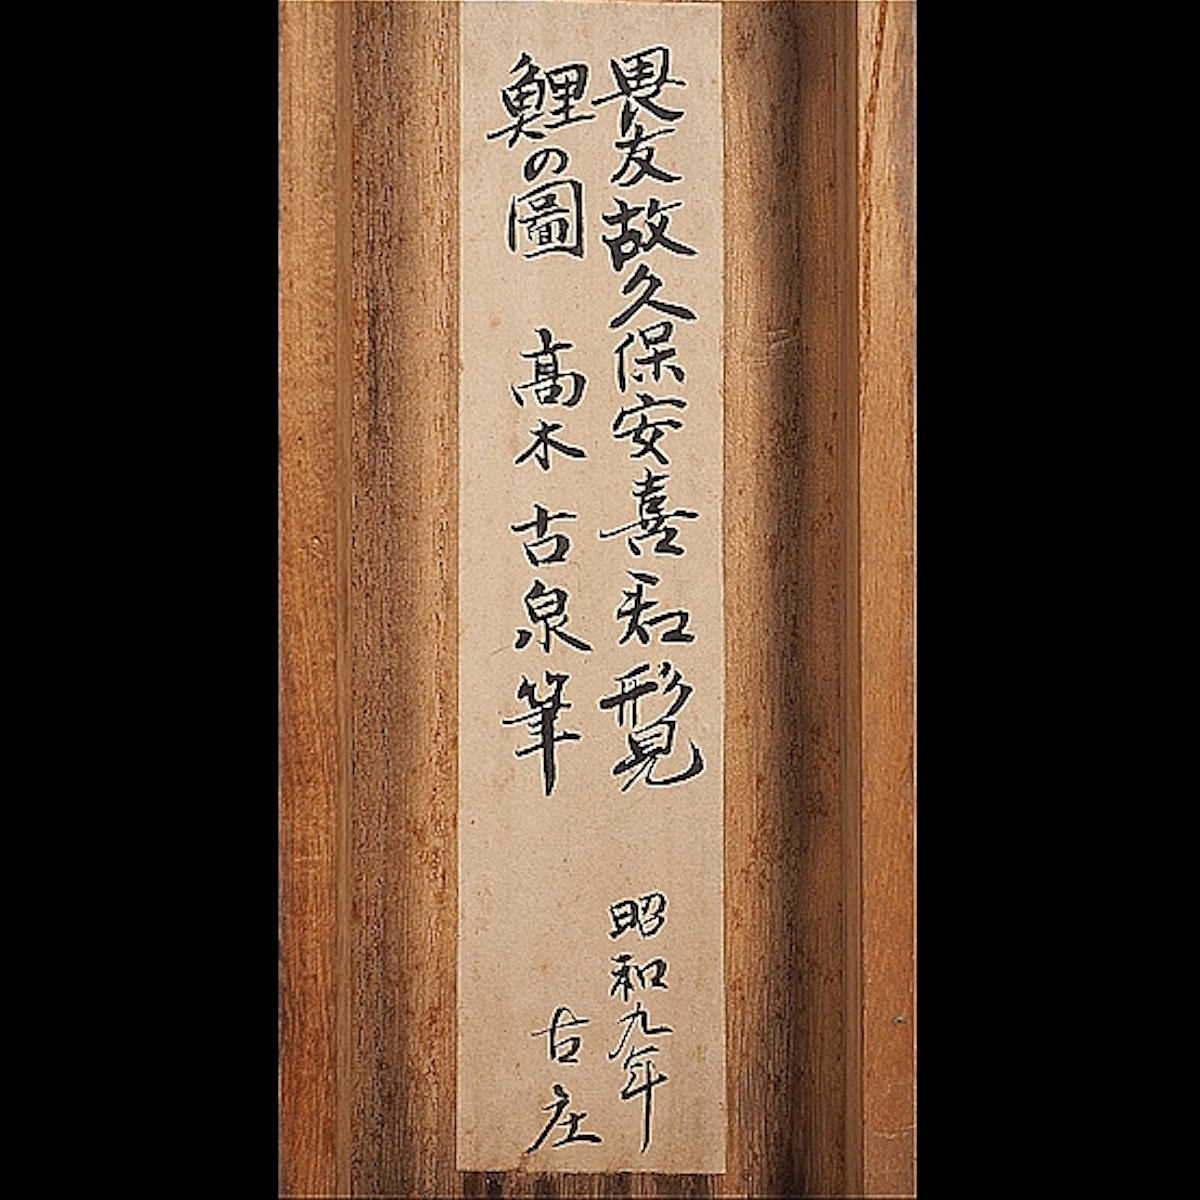 畏友故久保安喜君形見　昭和九年
鯉の圖　髙木古泉筆　古庄